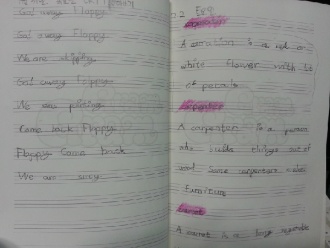 Go away Floppy
Go away Floppy.
We are
Go away Floppy.
We are
Come back Floppy.
Floppy Come back
We are sorry.
2
carnation
A carnation is a red or
white flower with lot
of petals
carpenter
A carpenter is a person
who builds things out of
wood Some carpenter makes
Furniture
carrot
A carrot is a long vegetable